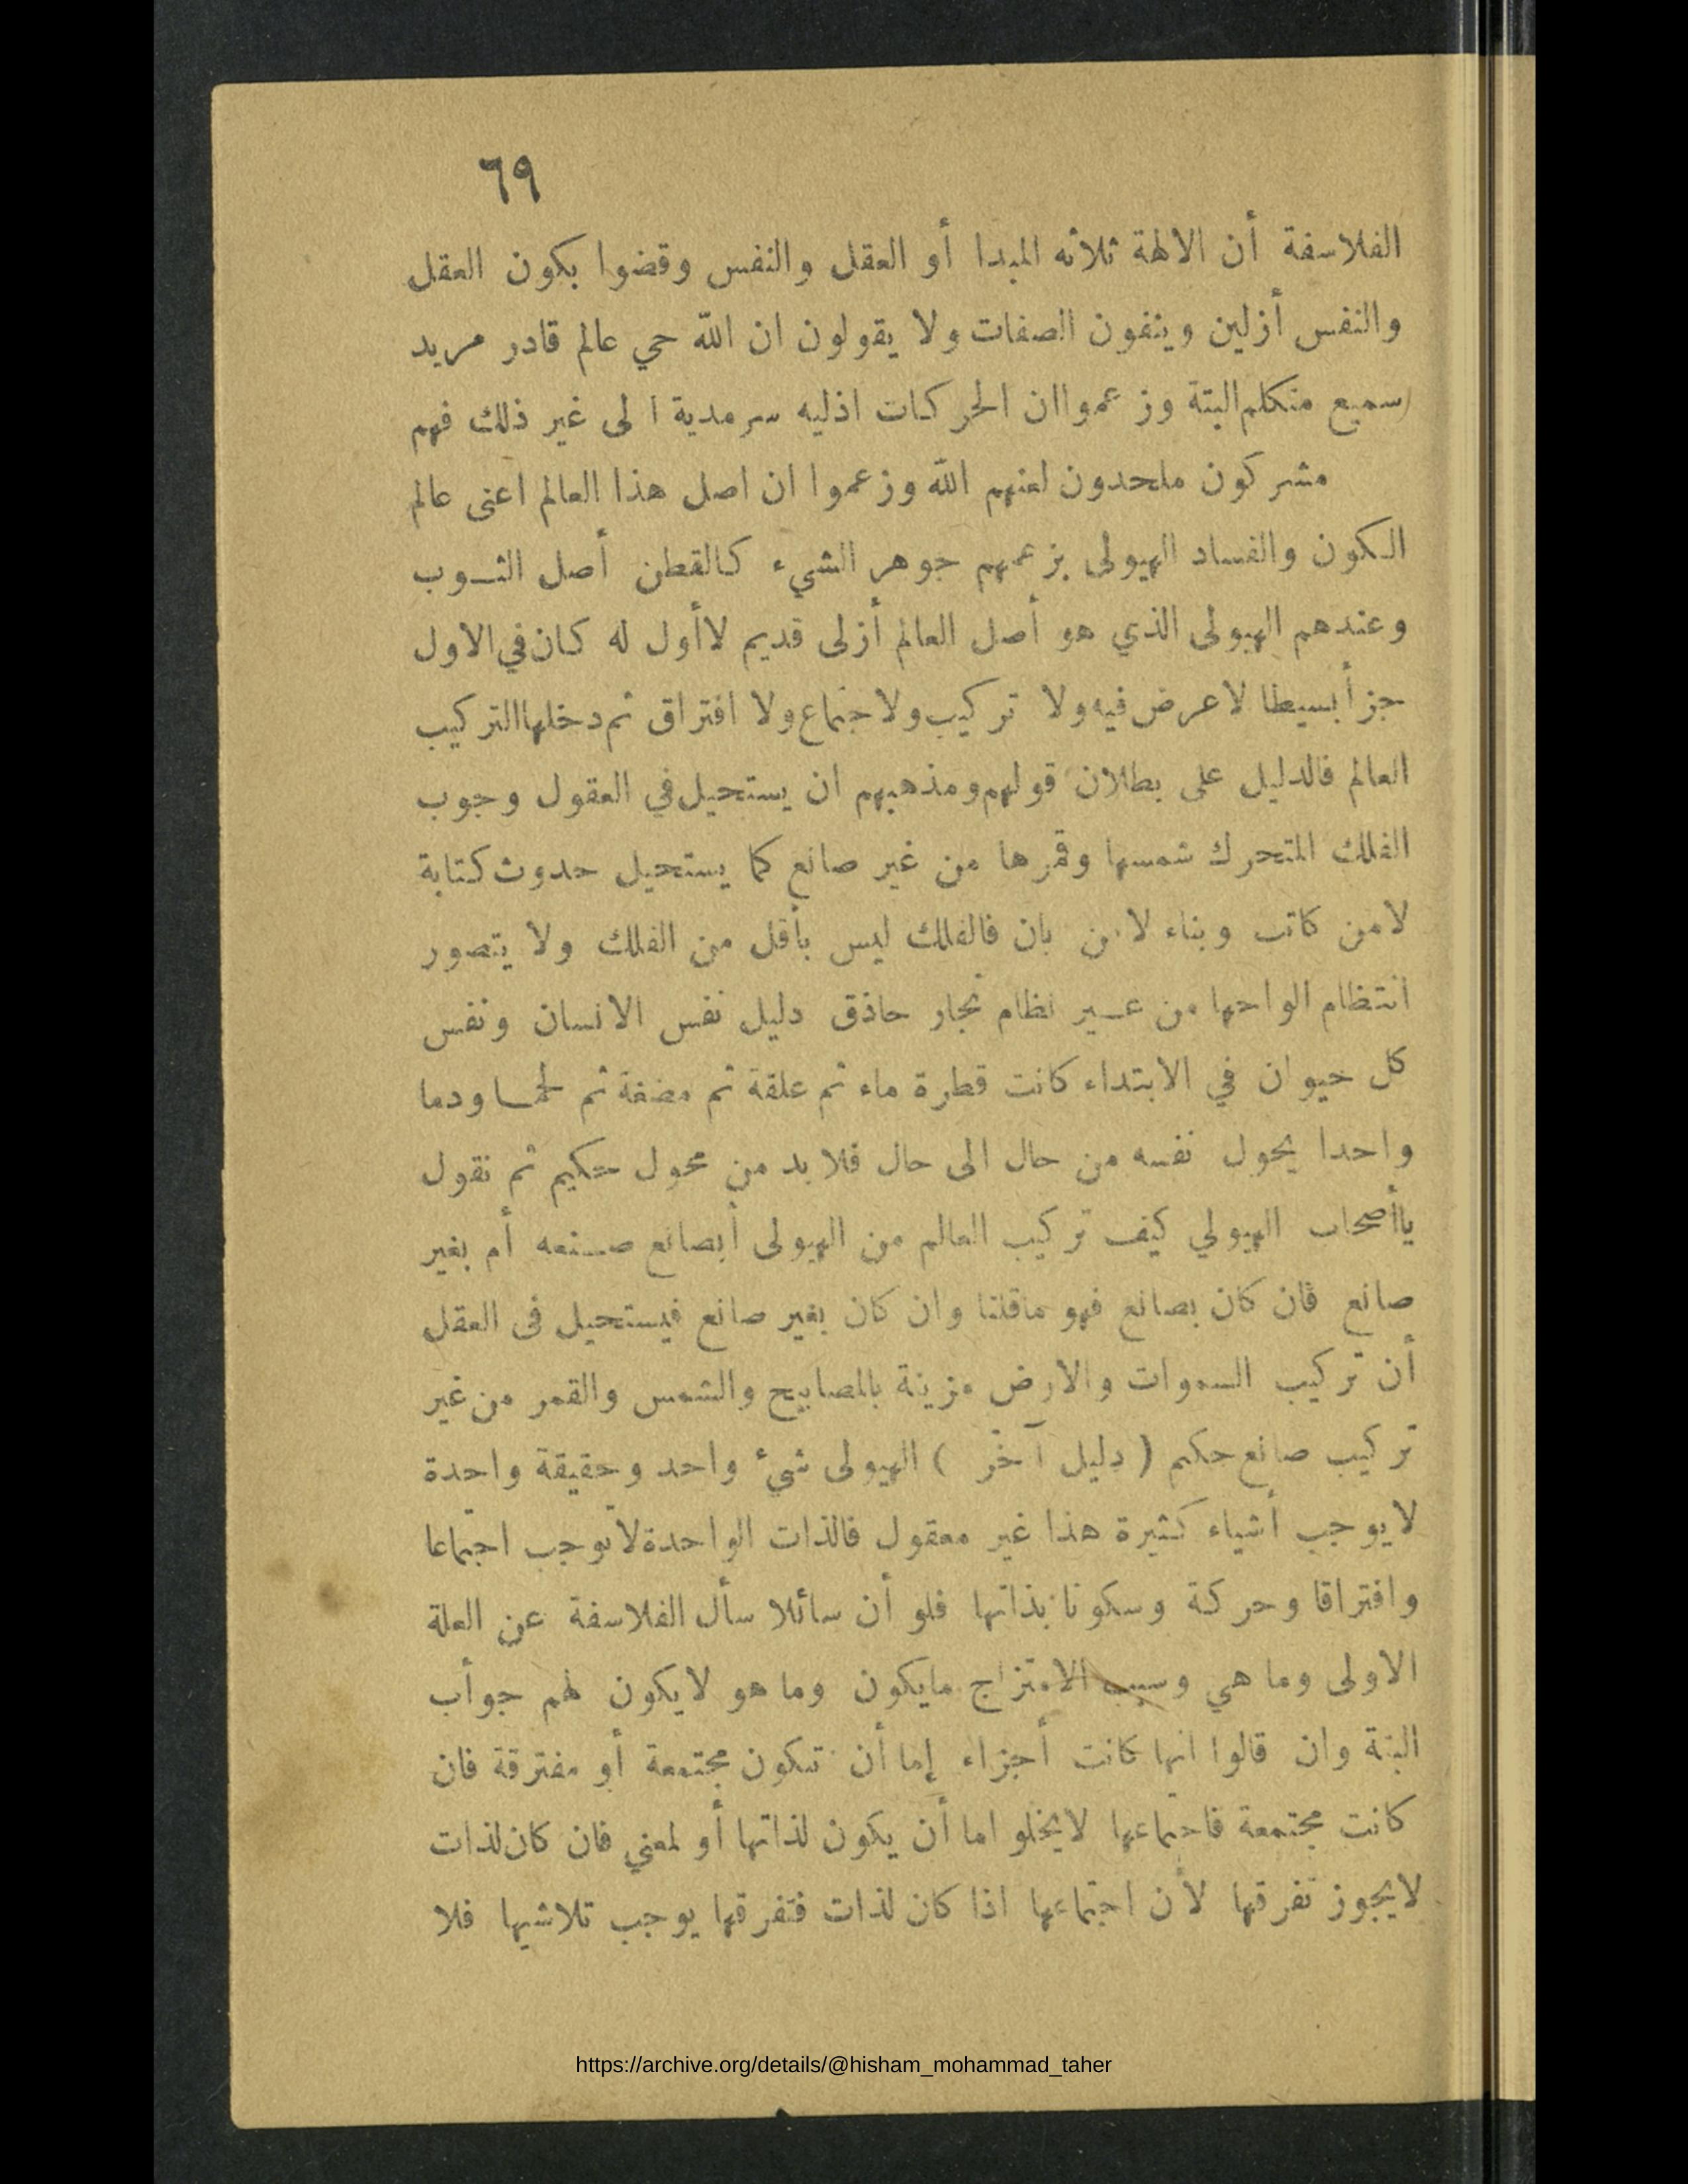 ٦٩
الفلاسفة أن الالهة ثلاثه المبدا أو العقل والنفس وقضوا بكون العقل
والنفس أزلين وينفون الصفات ولا يقولون ان الله حي عالم قادر مريد
سميع متكلم البتة وزعموا ان الحركات اذليه سرمدية الى غير ذلك فهم
مشركون ملحدون لعنهم الله وزعموا ان اصل هذا العالم اعنى عالم
الكون والفساد الهيولى بزعمهم جوهر الشيء كالقطن أصل الثوب
وعندهم الهيولى الذي هو أصل العالم أزلى قديم لا أول له كان في الاول
جزأ بسيطا لا عرض فيه ولا تركيب ولا جتماع ولا افتراق ثم دخلها التركيب
العالم فالدليل على بطلان قولهم ومذهبهم ان يستحيل في العقول وجوب
الفلك المتحرك شمسها وقمرها من غير صانع كما يستحيل حدوث كتابة
لا من كاتب وبناء لا من بان فالفلك ليس بأقل من الفلك ولا يتصور
انتظام الواحها من عير نظام نجار حاذق دليل نفس الانسان ونفس
كل حيوان في الابتداء كانت قطرة ماء ثم علقة ثم مضغة ثم لحما ودما
واحدا يحول نفسه من حال الى حال فلا بد من محول حكيم ثم نقول
ياأصحاب الهيولي كيف تركيب العالم من الهيولى أبصانع صنعه أم بغير
صانع فان كان بصانع فهو ماقلنا وان كان بغير صانع فيستحيل فى العقل
أن تركيب السموات والارض مزينة بالمصابيح والشمس والقمر من غير
تركيب صانع حكم ( دليل آخر ) الهيولى شيء واحد وحقيقة واحدة
لايوجب أشياء كثيرة هذا غير معقول فالذات الواحدة لاتوجب اجتماعا
وافتراقا وحركة وسكونا بذاتها فلو أن سائلا سأل الفلاسفة عن العلة
الاولى وما هي وسبب الامتزاج مايكون وما هو لايكون لهم جوأب
البتة وان قالوا انها كانت أجزاء إما أن تكون مجتمعة أو مفترقة فان
كانت مجتمعة فاجتماعها لايخلو اما أن يكون لذاتها أو لمعني فان كان لذات
لايجوز تفرقها لأن اجتماعها اذا كان لذات فتفرقها يوجب تلاشيها فلا
https://archive.org/details/@hisham_mohammad_taher